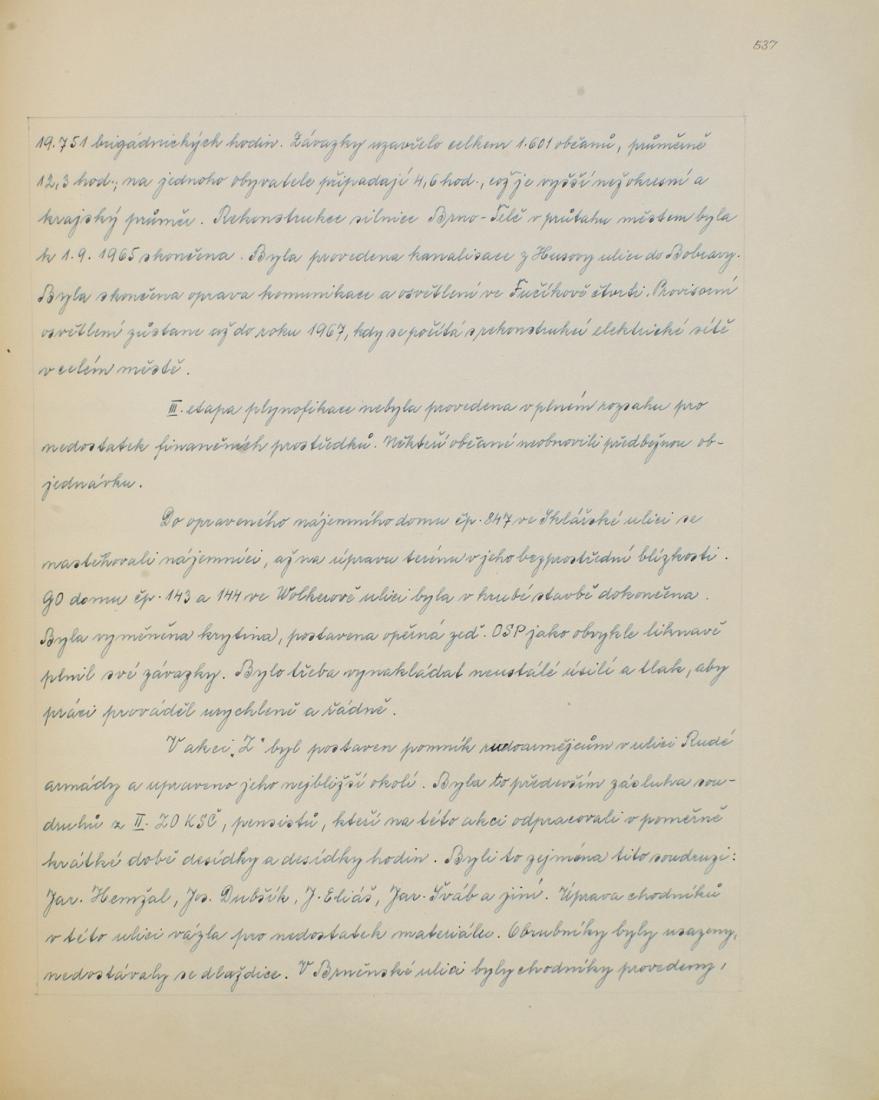 537
19.751 brigádnických hodin. Závazky uzavřelo celkem 1.601 občanů, průměrně
12,3 hod., na jednoho obyvatele připadají 4,6 hod., což je vyšší než okresní a
krajský průměr. Rekonstrukce silnice Brno-Telč v průtahu městem byla
k 1.9. 1965 skončena. Byla provedena kanalisace z Husovy ulice do Bobravy.
Byla skončena oprava komunikace a osvětlení ve Fučíkově čtvrti. Provisorní
osvětlení zůstane až do roku 1967, kdy se počítá s rekonstrukcí elektrické sítě
v celém městě.
III. etapa plynofikace nebyla provedena v plném rozsahu pro
nedostatek finančních prostředků. Někteří občané neobnovili předběžnou ob-
jednávku.
Do opraveného nájemního domu čp. 847 ve Sklářské ulici se
nastěhovali nájemníci, až na úpravu terénu v jeho bezprostřední blízkosti.
GO domu čp. 143 a 144 ve Wolkerově ulici byla v hrubé stavbě dokončena.
Byla vyměněna krytina, postavena opěrná zeď. OSP jako obvykle liknavě
plnil své závazky. Bylo třeba vynakládat neustálé úsilí a tlak, aby
práci prováděl urychleně a řádně.
V akci „Z" byl postaven pomník rudoarmějcům v ulici Rudé
armády a upraveno jeho nejbližší okolí. Byla to především zásluha sou-
druhů z II. ZO KSČ, pensistů, kteří na této akci odpracovali v poměrně
krátké době desídky a desídky hodin. Byli to zejména tito soudruzi:
Jar. Hemžal, Jos. Dubšík, J. Eliáš, Jar. Šváb a jiní. Úprava chodníků
v této ulici vázla pro nedostatek materiálu. Obrubníky byly usazeny,
nedostávaly se dlaždice. V Brněnské ulici byly chodníky provedeny,